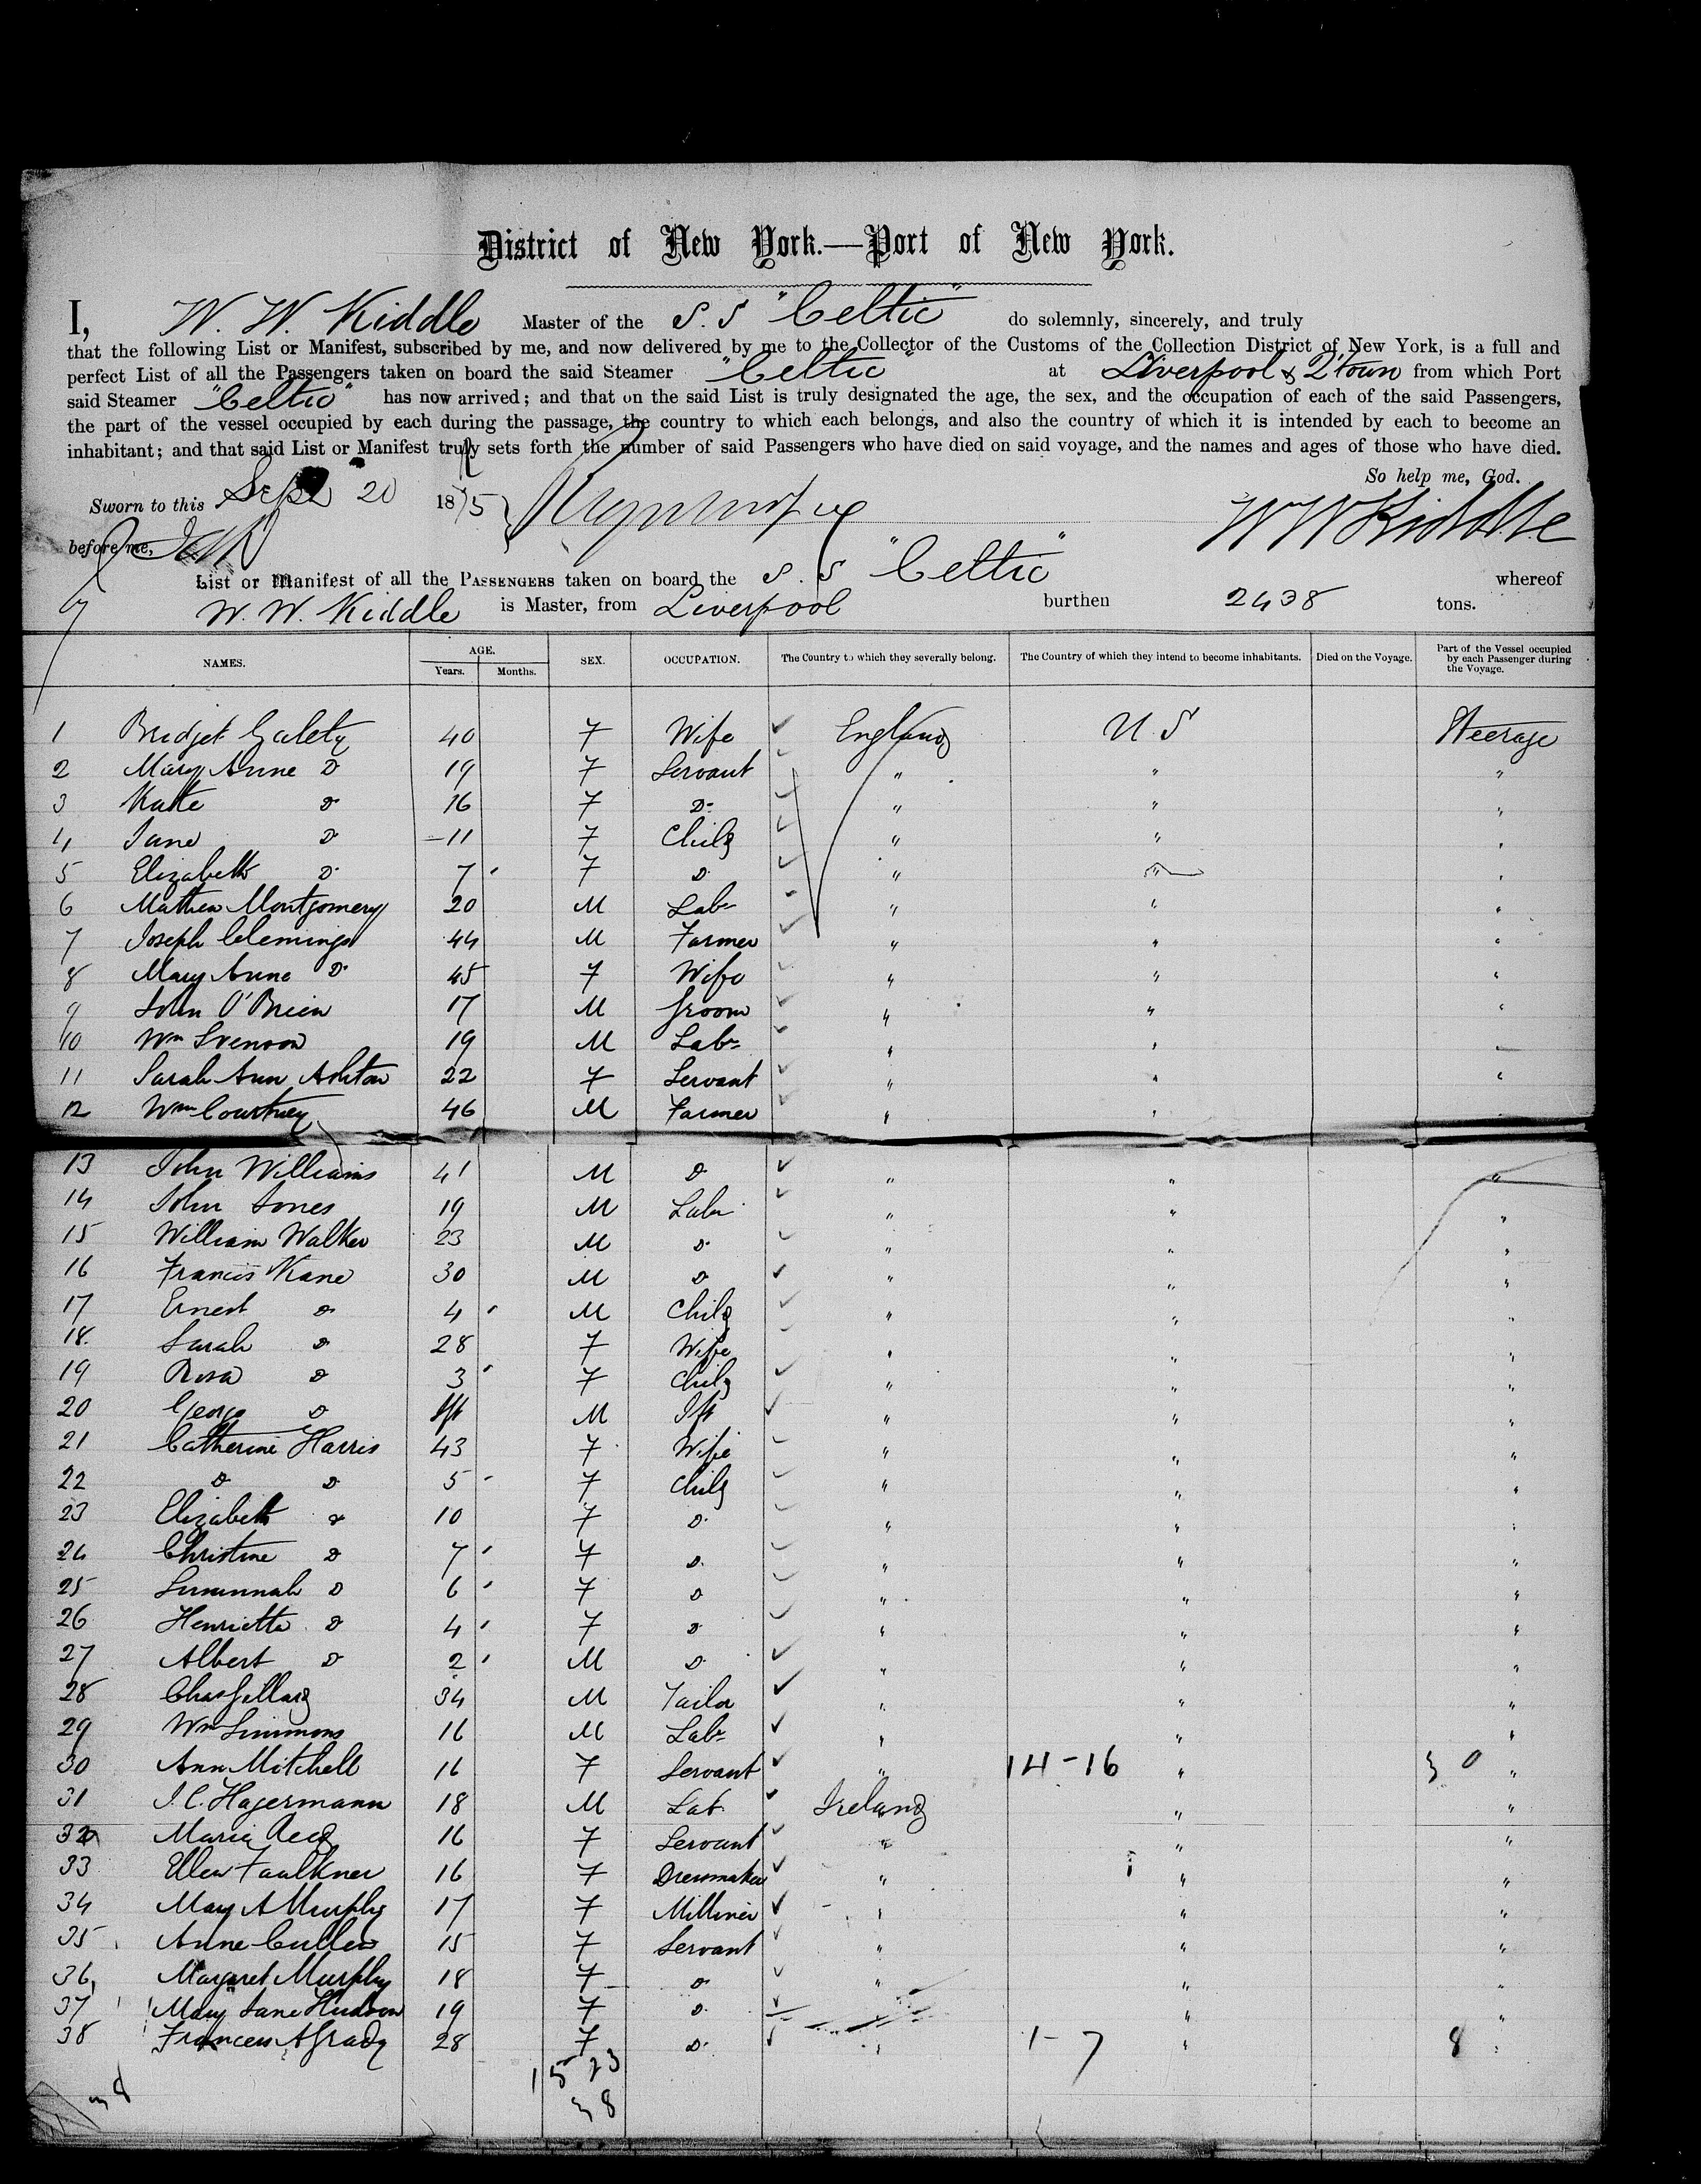 District of New York.—Port of New York.
I, W. W. Kiddle Master of the S. S "Celtic" do solemnly, sincerely, and truly
that the following List or Manifest, subscribed by me, and now delivered by me to the Collector of the Customs of the Collection District of New York, is a full and
perfect List of all the Passengers taken on board the said Steamer "Celtic" at Liverpool & Q'town from which Port
said Steamer "Celtic" has now arrived; and that on the said List is truly designated the age, the sex, and the occupation of each of the said Passengers,
the part of the vessel occupied by each during the passage, the country to which each belongs, and also the country of which it is intended by each to become an
inhabitant; and that said List or Manifest truly sets forth the number of said Passengers who have died on said voyage, and the names and ages of those who have died.
So help me, God.
Sworn to this Sept 20 1875
W W Kiddle
before me,
List or Manifest of all the PASSENGERS taken on board the S. S "Celtic" whereof
W. W. Kiddle is Master, from Liverpool burthen 2438 tons.
NAMES. AGE. Years. Months. SEX. OCCUPATION. The Country to which they severally belong. The Country of which they intend to become inhabitants. Died on the Voyage. Part of the Vessel occupied by each Passenger during the Voyage.
1 Bridget 40 F Wife England U. S Steerage
2 Mary Anne Do 19 F Servant " " "
3 Kate Do 16 F Do " " "
4 Jane Do 11 F Child " " "
5 Elizabeth Do 7 F Do " " "
6 Mathew Montgomery 20 M Labr " " "
7 Joseph Clemings 44 M Farmer " " "
8 Mary Anne Do 45 F Wife " " "
9 John O'Brien 17 M Groom " " "
10 Wm Svenson 19 M Labr " " "
11 Sarah Ann Ashton 22 F Servant " " "
12 Wm Courtney 46 M Farmer " "
13 John Williams 41 M Do " " "
14 John Jones 19 M Labr " " "
15 William Walker 23 M Do " " "
16 Francis Kane 30 M Do " " "
17 Ernest Do 4 M Child " " "
18 Sarah Do 28 F Wife " " "
19 Rosa Do 3 F Child " " "
20 George Do Inft M Ift " " "
21 Catherine Harris 43 F Wife " " "
22 Do Do 5 F Child " " "
23 Elizabeth Do 10 F Do " " "
24 Christine Do 7 F Do " " "
25 Susannah Do 6 F Do " " "
26 Henrietta Do 4 F Do " " "
27 Albert Do 2 M Do " " "
28 Chas Gillard 34 M Tailor " " "
29 Wm Simmons 16 M Labr " " "
30 Ann Mitchell 16 F Servant " 14-16 " 30 "
31 J. C. Hagermann 18 M Lab Ireland " "
32 Maria Reed 16 F Servant " " "
33 Ellen Faulkner 16 F Dressmaker " " "
34 Mary A Murphy 17 F Milliner " " "
35 Anne Cullen 15 F Servant " " "
36 Margaret Murphy 18 F Do " " "
37 Mary Jane Hudson 19 F Do " "
38 Frances A Grady 28 F Do " 1-7 " 8 "
15 23
38
38